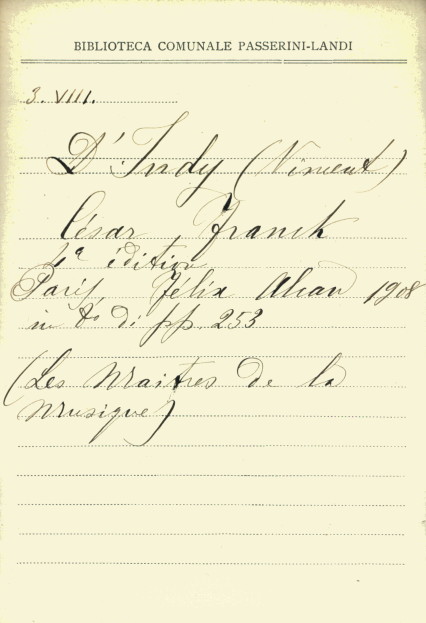 BIBLIOTECA COMUNALE PASSERINI-LANDI
3. VIII.
D'Indy (Vincent)
César Franck
4ª édition
Paris, Félix Alcan 1908
in 8º di pp. 253
(Les Maitres de la
Musique)